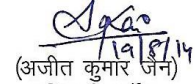 19/8/14
(अजीत कुमार जैन)